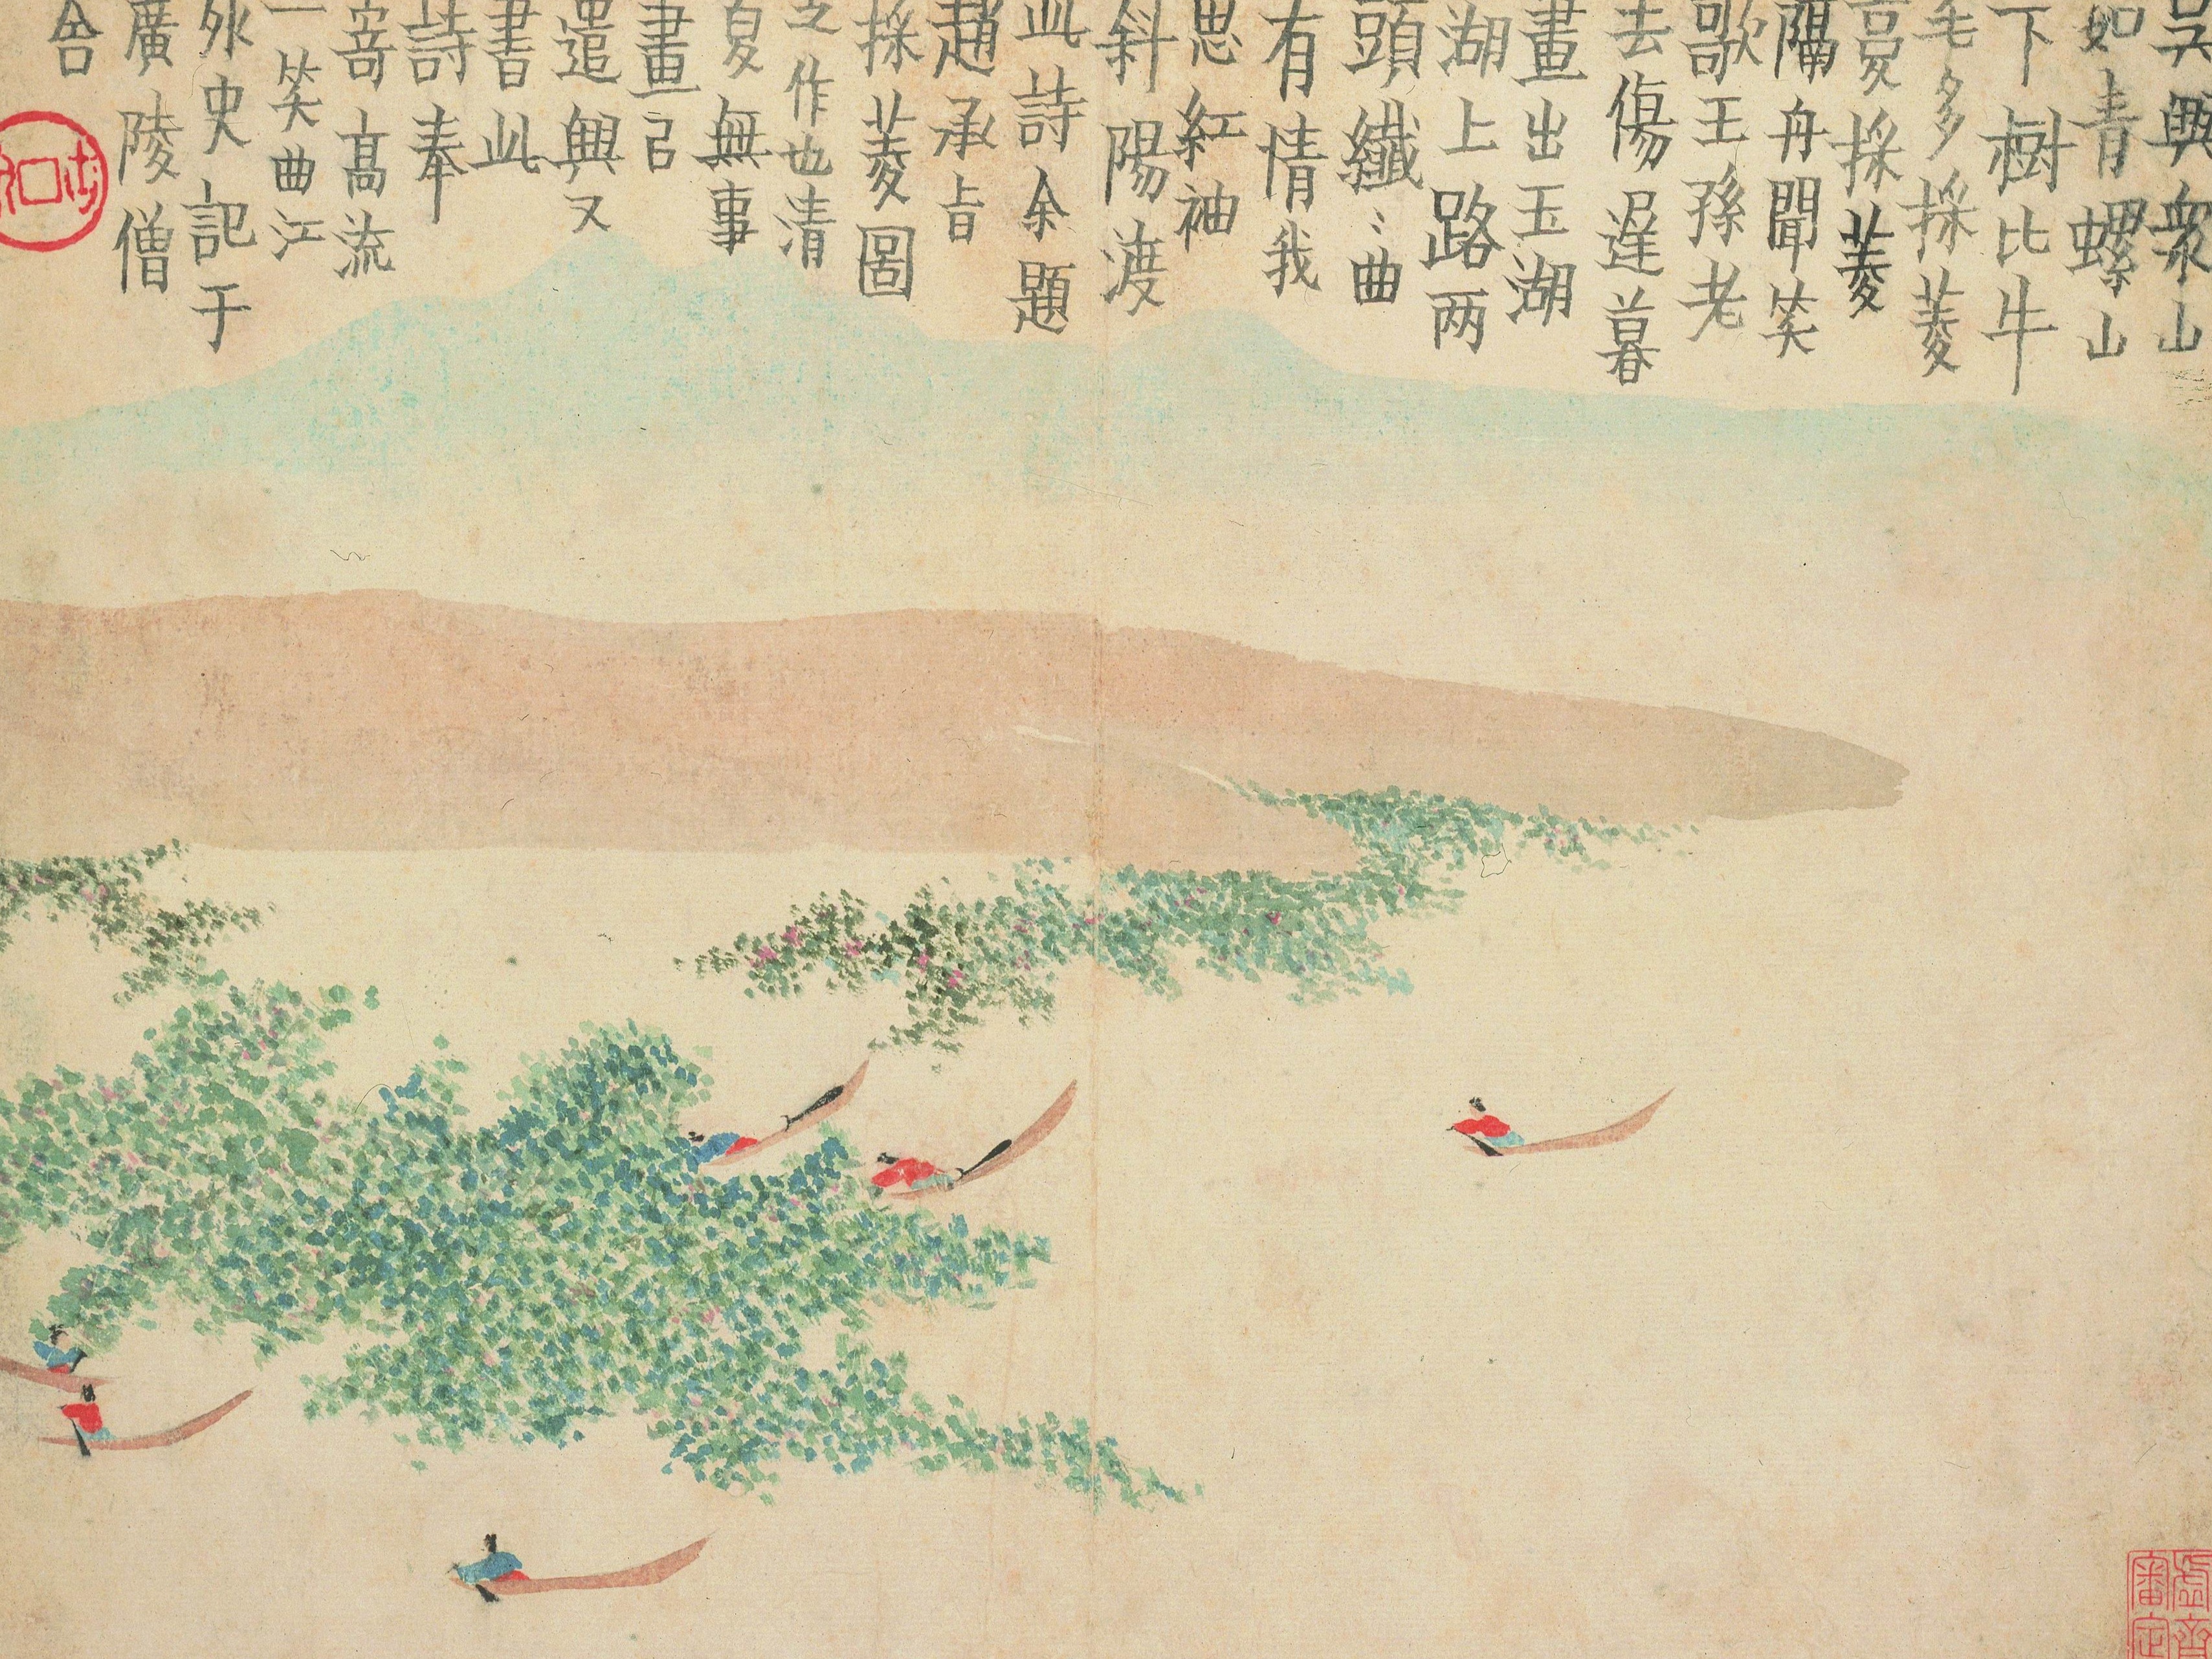 吴興衆山
如青螺山
下樹比牛
毛多採菱
复採菱
隔舟聞笑
歌王孫老
去傷遅暮
畫出玉湖
湖上路两
頭纖〻曲
有情我
思紅袖
斜陽渡
此詩余題
趙承旨
採菱圖
之作也清
夏無事
畫㠯
遣興又
書此
詩奉
寄髙流
一笑曲江
外史記于
廣陵僧
舍
虛齋
審定